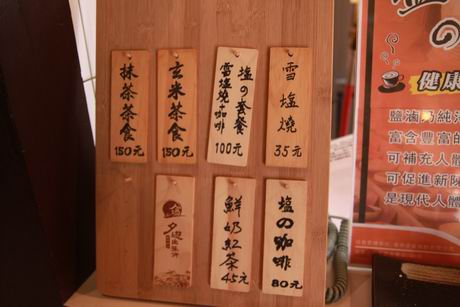 抹茶茶食
150元
玄米茶食
150元
塩の套餐
雪塩燒+咖啡
100元
雪塩燒
35元
夕遊出張所
鮮奶紅茶
45元
塩の咖啡
80元
塩
の
健康
鹽滷乃純
富含豐富的
可補充人體
可促進新陳
是現代人體